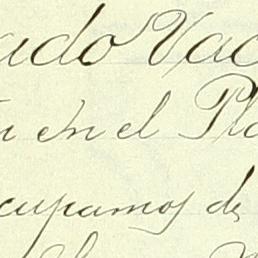 ado Vac
n en el Pla
cupamos de